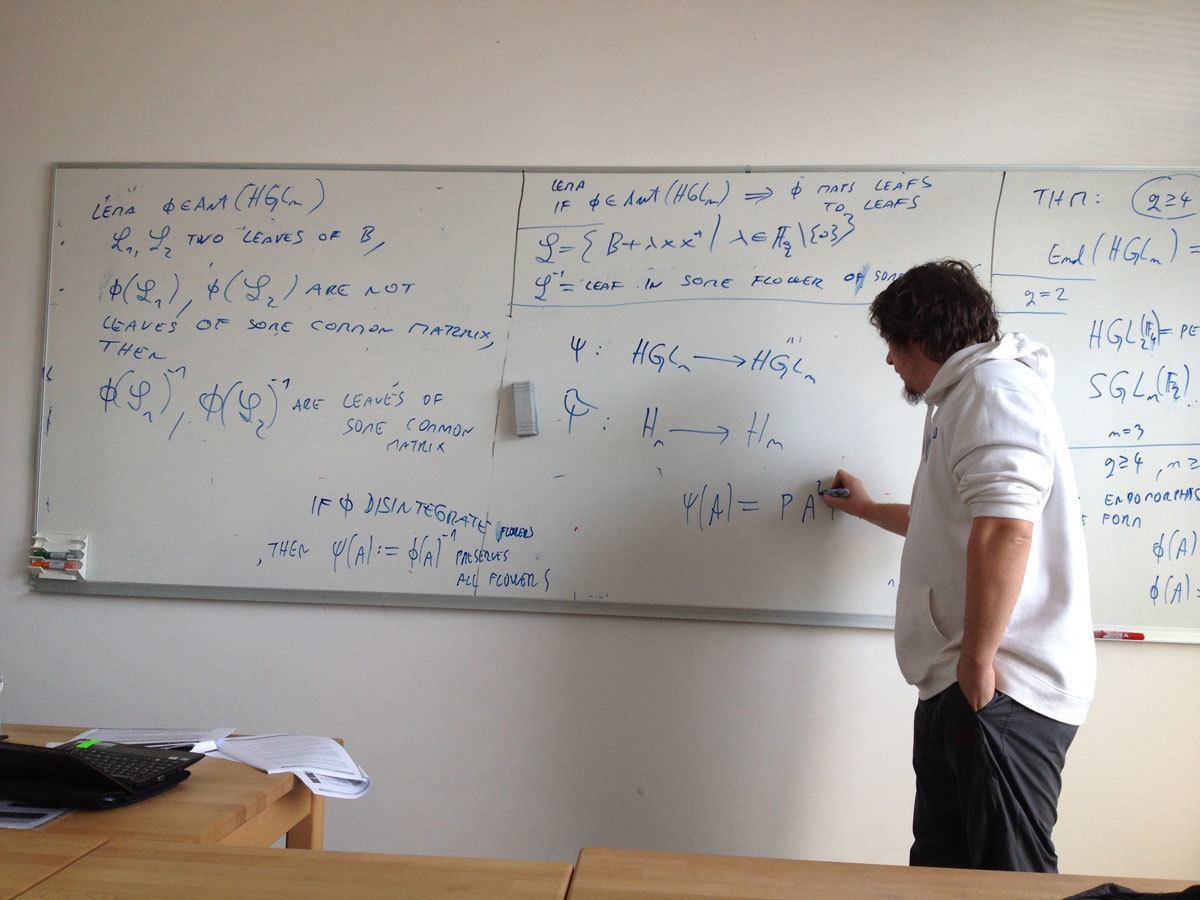 LEMA ϕ∈Aut(HGLₙ)
ℒ₁, ℒ₂ TWO LEAVES OF B,
ϕ(ℒ₁), ϕ(ℒ₂) ARE NOT
LEAVES OF SOME COMMON MATRIX,
THEN
ϕ(ℒ₁)⁻¹, ϕ(ℒ₂)⁻¹ ARE LEAVES OF
SOME COMMON
MATRIX
IF ϕ DISINTEGRATE FLOWERS
, THEN ψ(A):= ϕ(A)⁻¹ PRESERVES
ALL FLOWERS
LEMA
IF ϕ∈Aut(HGLₙ) ⟹ ϕ MAPS LEAFS
TO LEAFS
ℒ = { B+λxx* | λ∈𝔽_q\{0}}
ℒ⁻¹ = LEAF IN SOME FLOWER OF
Ψ: HGLₙ ⟶ HGLₙ
Ψ̃: Hₙ ⟶ Hₙ
ψ(A) = P A
THM: q≥4
End(HGLₙ) =
q=2
HGL
SGLₙ(𝔽₂)
n=3
q≥4, n≥
FORM
ϕ(A)
ϕ(A) =